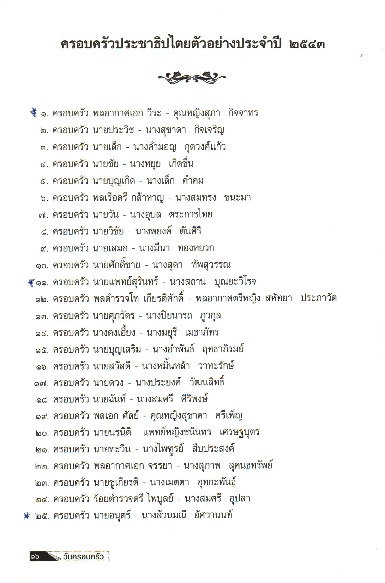 ครอบครัวประชาธิปไตยตัวอย่างประจำปี ๒๕๔๓
๑. ครอบครัว พลอากาศเอก วีระ - คุณหญิงสุภา กิจจาทร
๒. ครอบครัว นายประวิช - นางสุชาดา กิจเจริญ
๓. ครอบครัว นายเล็ก - นางคำมอญ กุดวงค์แก้ว
๔. ครอบครัว นายชัย - นางหยุย เกิดชื่น
๕. ครอบครัว นายบุญเกิด - นางเล็ก คำคม
๖. ครอบครัว พลเรือตรี กล้าหาญ - นางสมทรง ชนะมา
๗. ครอบครัว นายวัน - นางอุบล ตระการไทย
๘. ครอบครัว นายวิชัย - นางพยงค์ ตันศิริ
๙. ครอบครัว นายเสมอ - นางมีนา ทองหยวก
๑๐. ครอบครัว นายศักดิ์ชาย - นางสุดา ทัพสุวรรณ
๑๑. ครอบครัว นายแพทย์สุรินทร์ - นางสถาน บุณยะวิโรจ
๑๒. ครอบครัว พลตำรวจโท เกียรติศักดิ์ - พลอากาศตรีหญิง สหัทยา ประภาวัต
๑๓. ครอบครัว นายศุภวัตร - นางปิยนารถ ภูวกุล
๑๔. ครอบครัว นางตงเฮี้ยง - นางมยุรี เมธาภัทร
๑๕. ครอบครัว นายบุญเสริม - นางอำพันธ์ ฤทธาภิรมย์
๑๖. ครอบครัว นายสวัสดี - นางหมิ้นหล้า วาหะรักษ์
๑๗. ครอบครัว นายดวง - นางประยงค์ วัฒนสิทธิ์
๑๘. ครอบครัว นายฉันท์ - นางสมศรี ศิริพงษ์
๑๙. ครอบครัว พลเอก ศัลย์ - คุณหญิงสุชาดา ศรีเพ็ญ
๒๐. ครอบครัว นายนรนิติ แพทย์หญิงชนินทร เศรษฐบุตร
๒๑. ครอบครัว นายทะวีน - นางไพทูรย์ สืบประสงค์
๒๒. ครอบครัว พลอากาศเอก จรรยา - นางสุภาพ สุคนธทรัพย์
๒๓. ครอบครัว นายชูเกียรติ - นางเมตตา อุทกะพันธุ์
๒๔. ครอบครัว ร้อยตำรวจตรี ไพบูลย์ - นางสมศรี อุปสา
๒๕. ครอบครัว นายอนุตร์ - นางล้วนมณี อัศวานนท์
๑๖ วันครอบครัว